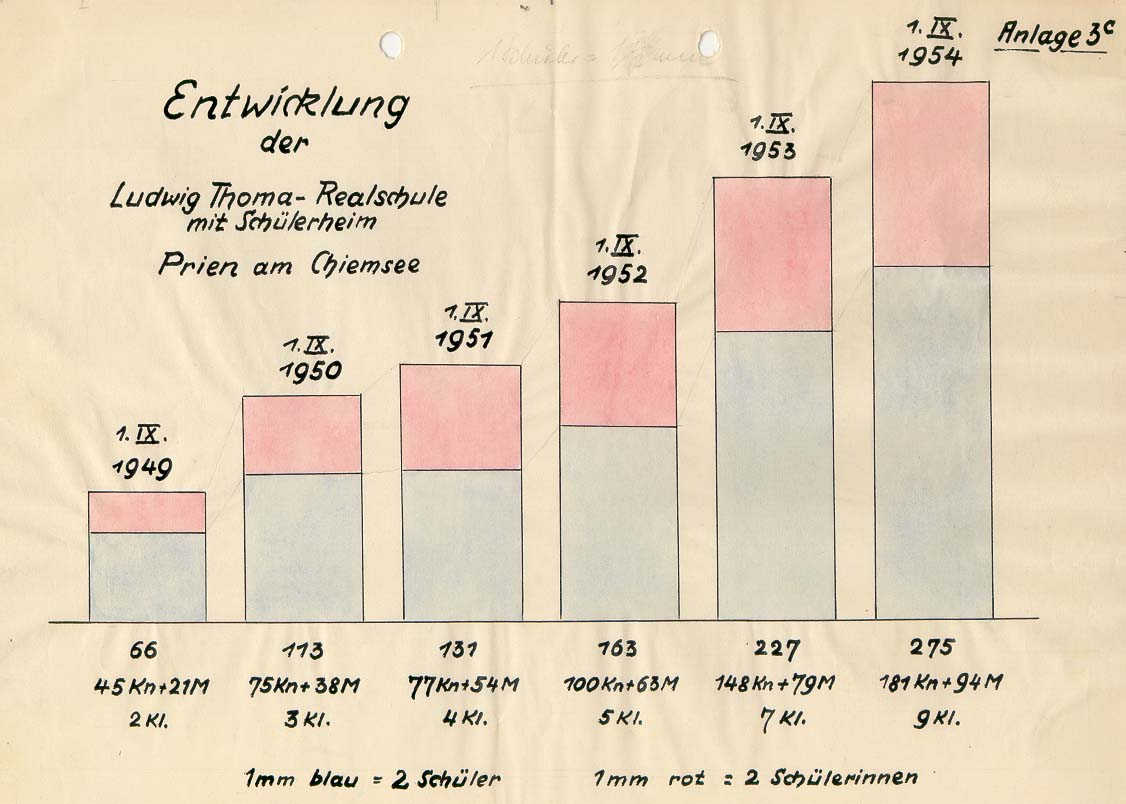 Anlage 3c
Entwicklung
der
Ludwig Thoma-Realschule
mit Schülerheim
Prien am Chiemsee
1. IX.
1949
1. IX.
1950
1. IX.
1951
1. IX.
1952
1. IX.
1953
1. IX.
1954
66 113 131 163 227 275
45Kn+21M 75Kn+38M 77Kn+54M 100Kn+63M 148Kn+79M 181Kn+94M
2 Kl. 3 Kl. 4 Kl. 5 Kl. 7 Kl. 9 Kl.
1mm blau = 2 Schüler 1mm rot = 2 Schülerinnen